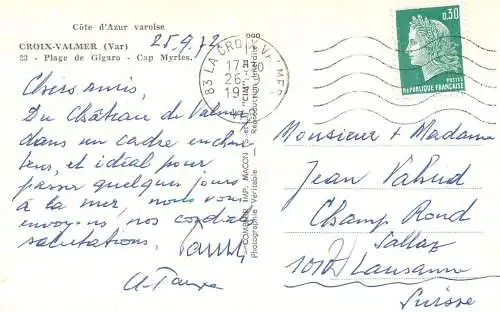 Côte d'Azur varoise
CROIX-VALMER (Var)
23 - Plage de Gigaro - Cap Myrtes.
25.9.72
Chers amis,
Du Château de Valmer
dans un cadre enchan-
teur, et idéal pour
passer quelques jours
à la mer, nous vous
envoyons, nos cordiales
salutations.
COMBIER IMP. MACON
Photographie Véritable - Reproduction Interdite
83 LA CROIX VALMER
0,30
POSTES
REPUBLIQUE FRANÇAISE
Monsieur + Madame
Jean Vahud
Champ Rond
Sallaz
1012 Lausanne
Suisse